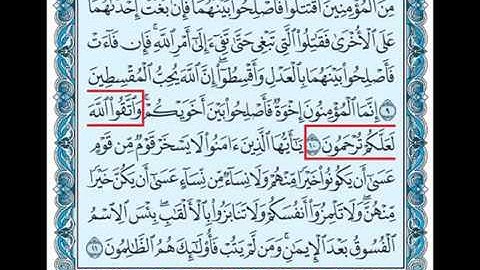 مِنَ ٱلْمُؤْمِنِينَ ٱقْتَتَلُوا۟ فَأَصْلِحُوا۟ بَيْنَهُمَا فَإِنۢ بَغَتْ إِحْدَىٰهُمَا
عَلَى ٱلْأُخْرَىٰ فَقَٰتِلُوا۟ ٱلَّتِى تَبْغِى حَتَّىٰ تَفِىٓءَ إِلَىٰٓ أَمْرِ ٱللَّهِ فَإِن فَآءَتْ
فَأَصْلِحُوا۟ بَيْنَهُمَا بِٱلْعَدْلِ وَأَقْسِطُوٓا۟ إِنَّ ٱللَّهَ يُحِبُّ ٱلْمُقْسِطِينَ
٩ إِنَّمَا ٱلْمُؤْمِنُونَ إِخْوَةٌ فَأَصْلِحُوا۟ بَيْنَ أَخَوَيْكُمْ وَٱتَّقُوا۟ ٱللَّهَ
لَعَلَّكُمْ تُرْحَمُونَ ١٠ يَٰٓأَيُّهَا ٱلَّذِينَ ءَامَنُوا۟ لَا يَسْخَرْ قَوْمٌ مِّن قَوْمٍ
عَسَىٰٓ أَن يَكُونُوا۟ خَيْرًا مِّنْهُمْ وَلَا نِسَآءٌ مِّن نِّسَآءٍ عَسَىٰٓ أَن يَكُنَّ خَيْرًا
مِّنْهُنَّ وَلَا تَلْمِزُوٓا۟ أَنفُسَكُمْ وَلَا تَنَابَزُوا۟ بِٱلْأَلْقَٰبِ بِئْسَ ٱلِٱسْمُ
ٱلْفُسُوقُ بَعْدَ ٱلْإِيمَٰنِ وَمَن لَّمْ يَتُبْ فَأُو۟لَٰٓئِكَ هُمُ ٱلظَّٰلِمُونَ ١١